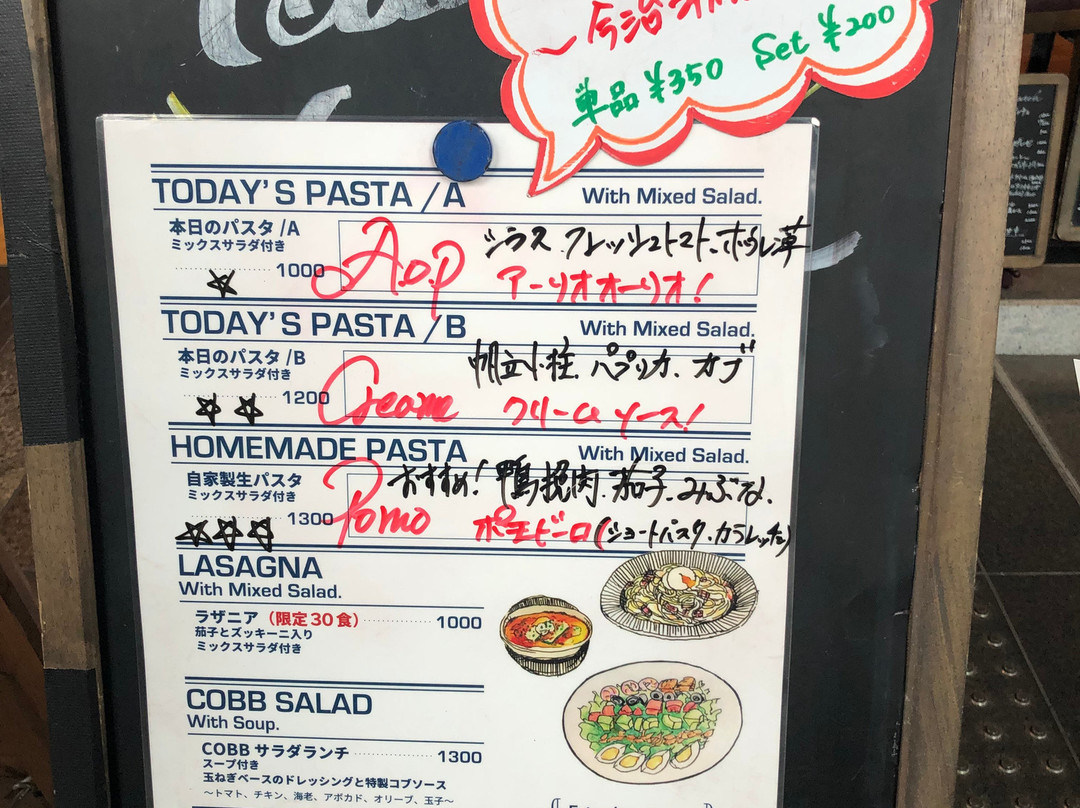 単品 ¥350 Set ¥200
TODAY'S PASTA /A With Mixed Salad.
本日のパスタ /A
ミックスサラダ付き
1000
A.o.p
シラス.フレッシュトマト.ホウレン草
アーリオオーリオ!
TODAY'S PASTA /B With Mixed Salad.
本日のパスタ /B
ミックスサラダ付き
1200
Creame
帆立小柱.パプリカ.オブ
クリームソース!
HOMEMADE PASTA With Mixed Salad.
自家製生パスタ
ミックスサラダ付き
1300
Pomo
おすすめ!鴨挽肉.茄子.みぶな.
ポモドーロ(ショートパスタ.カラレッチェ)
LASAGNA
With Mixed Salad.
ラザニア(限定30食) 1000
茄子とズッキーニ入り
ミックスサラダ付き
COBB SALAD
With Soup.
COBB サラダランチ 1300
スープ付き
玉ねぎベースのドレッシングと特製コブソース
〜トマト、チキン、海老、アボカド、オリーブ、玉子〜